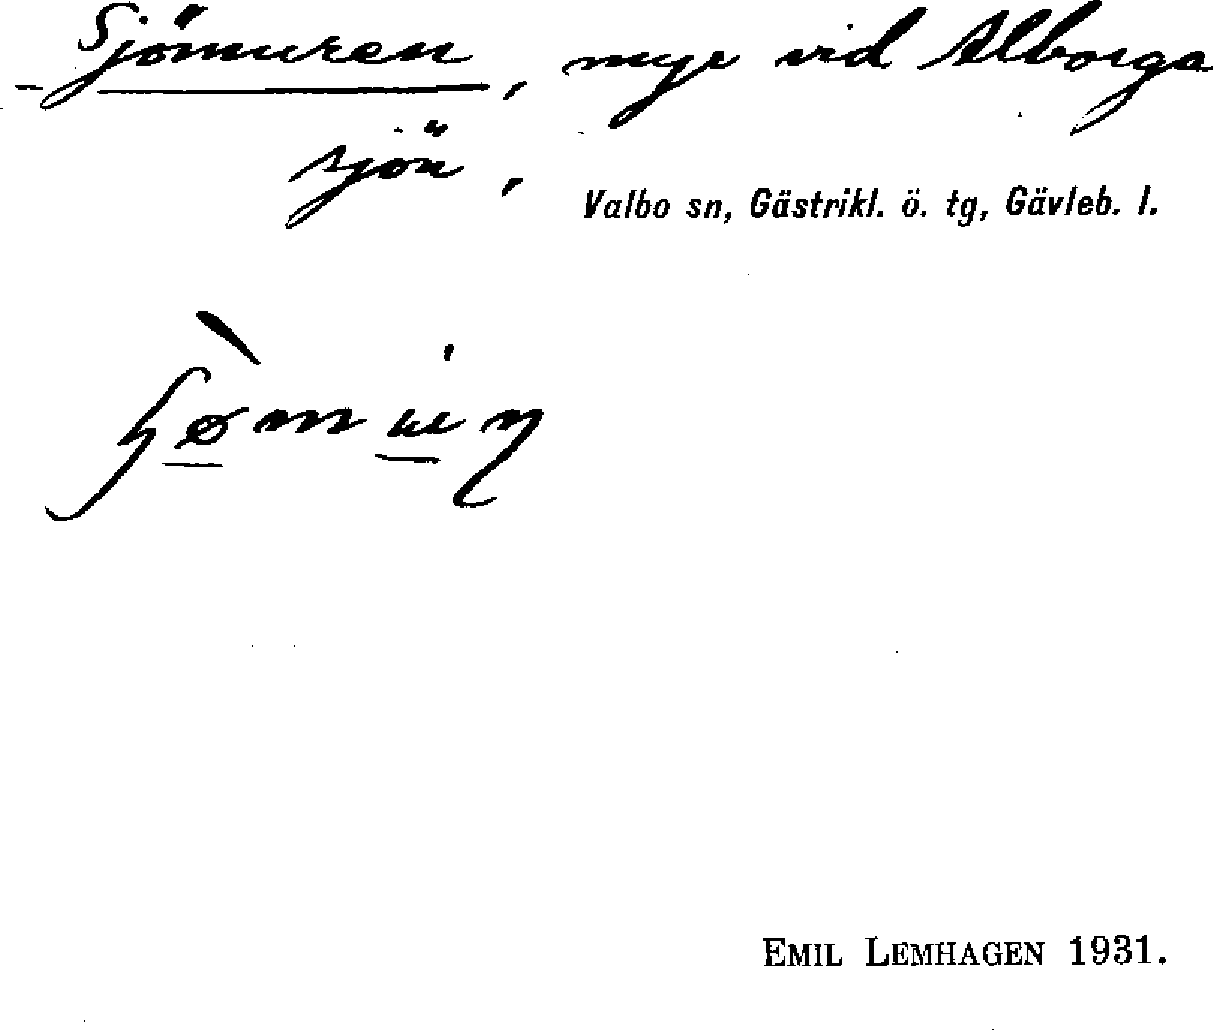 Sjömuren, myr vid Alborga
sjön,
Valbo sn, Gästrikl. ö. tg, Gävleb. l.
EMIL LEMHAGEN 1931.